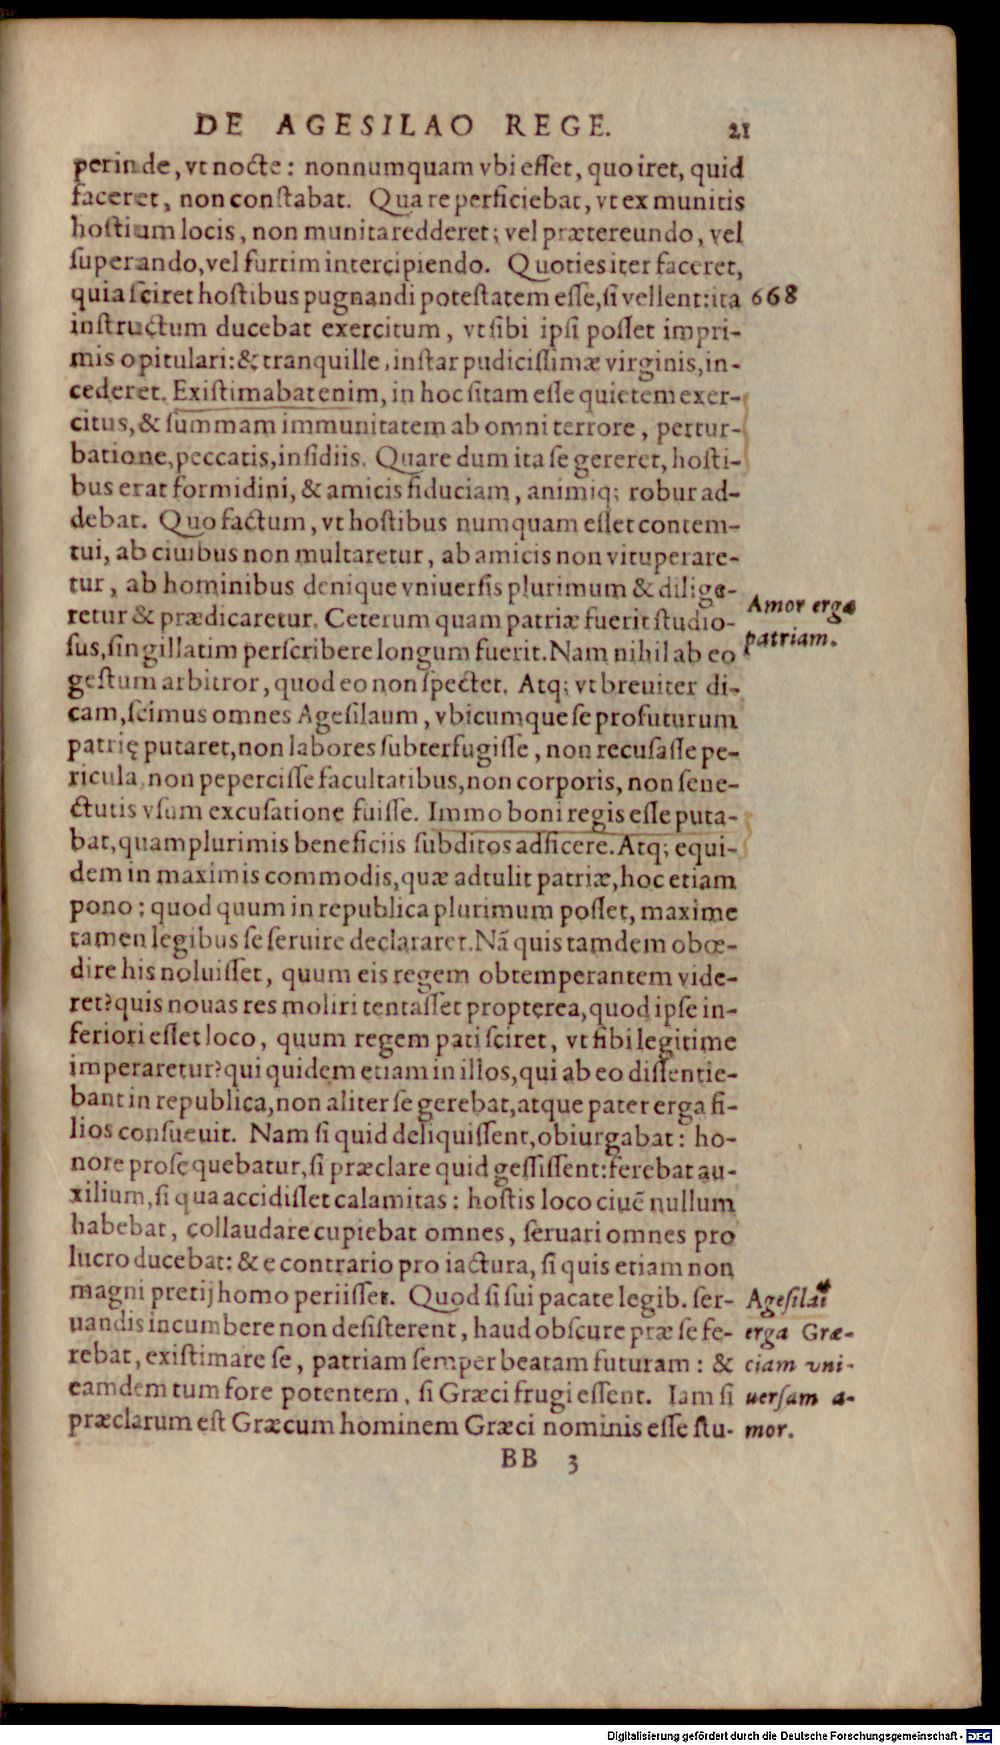 DE AGESILAO REGE. 21
perinde, vt nocte: nonnumquam vbi esset, quo iret, quid
faceret, non constabat. Quare perficiebat, vt ex munitis
hostium locis, non munita redderet; vel prætereundo, vel
superando, vel furtim intercipiendo. Quoties iter faceret,
quia sciret hostibus pugnandi potestatem esse, si vellent: ita 668
instructum ducebat exercitum, vt sibi ipsi posset impri-
mis opitulari: & tranquille, instar pudicissimæ virginis, in-
cederet. Existimabat enim, in hoc sitam esse quietem exer-
citus, & summam immunitatem ab omni terrore, pertur-
batione, peccatis, insidiis. Quare dum ita se gereret, hosti-
bus erat formidini, & amicis fiduciam, animiq; robur ad-
debat. Quo factum, vt hostibus numquam esset contem-
tui, ab ciuibus non multaretur, ab amicis non vituperare-
tur, ab hominibus denique vniuersis plurimum & dilige-
retur & prædicaretur. Ceterum quam patriæ fuerit studio-
Amor erga
patriam.
sus, singillatim perscribere longum fuerit. Nam nihil ab eo
gestum arbitror, quod eo non spectet. Atq; vt breuiter di-
cam, scimus omnes Agesilaum, vbicumque se profuturum
patrię putaret, non labores subterfugisse, non recusasse pe-
ricula, non pepercisse facultatibus, non corporis, non sene-
ctutis vsum excusatione fuisse. Immo boni regis esse puta-
bat, quamplurimis beneficiis subditos adficere. Atq; equi-
dem in maximis commodis, quæ adtulit patriæ, hoc etiam
pono: quod quum in republica plurimum posset, maxime
tamen legibus se seruire declararet. Nã quis tamdem obœ-
dire his noluisset, quum eis regem obtemperantem vide-
ret? quis nouas res moliri tentasset propterea, quod ipse in-
feriori esset loco, quum regem pati sciret, vt sibi legitime
imperaretur? qui quidem etiam in illos, qui ab eo dissentie-
bant in republica, non aliter se gerebat, atque pater erga fi-
lios consueuit. Nam si quid deliquissent, obiurgabat: ho-
nore prosequebatur, si præclare quid gessissent: ferebat au-
xilium, si qua accidisset calamitas: hostis loco ciuẽ nullum
habebat, collaudare cupiebat omnes, seruari omnes pro
lucro ducebat: & e contrario pro iactura, si quis etiam non
magni pretij homo periisset. Quod si sui pacate legib. ser-
uandis incumbere non desisterent, haud obscure præ se fe-
rebat, existimare se, patriam semper beatam futuram: &
eamdem tum fore potentem, si Græci frugi essent. Iam si
præclarum est Græcum hominem Græci nominis esse stu-
Agesilai
erga Græ-
ciam vni-
uersam a-
mor.
BB 3
Digitalisierung gefördert durch die Deutsche Forschungsgemeinschaft - DFG